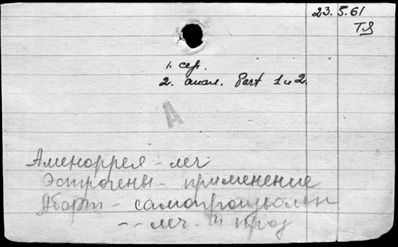 23.5.61
ТЯ
1. сер.
2. анал. Part 1 и 2.
А
Аменоррея - леч
Эстрогены - применение
Аборт - самопроизвольн
-- леч. и проф